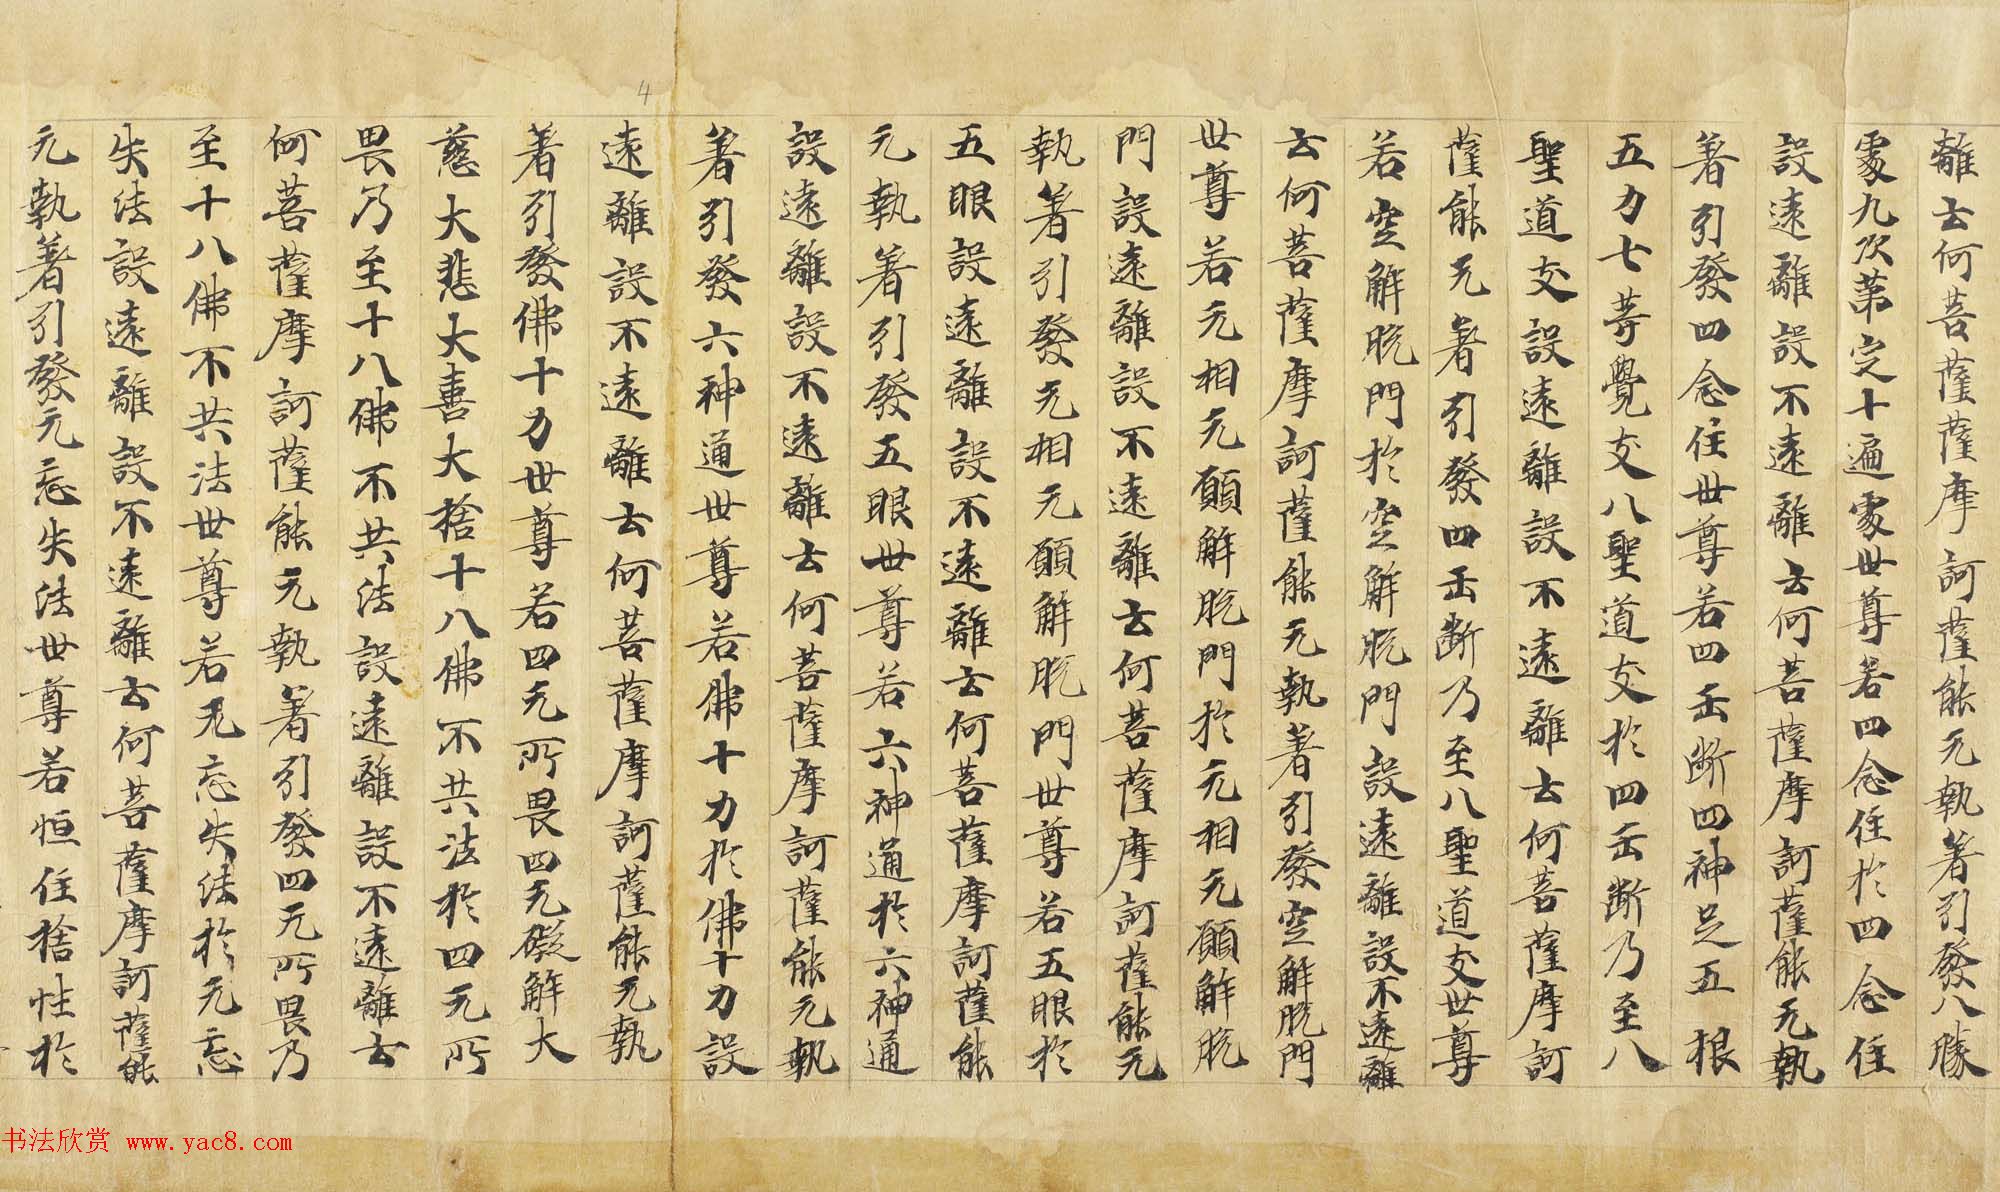 離云何菩薩摩訶薩能无執著引發八勝
處九次第定十遍處世尊若四念住於四念住
設遠離設不遠離云何菩薩摩訶薩能无執
著引發四念住世尊若四正斷四神足五根
五力七等覺支八聖道支於四正斷乃至八
聖道支設遠離設不遠離云何菩薩摩訶
薩能无著引發四正斷乃至八聖道支世尊
若空解脫門於空解脫門設遠離設不遠離
云何菩薩摩訶薩能无執著引發空解脫門
世尊若无相无願解脫門於无相无願解脫
門設遠離設不遠離云何菩薩摩訶薩能无
執著引發无相无願解脫門世尊若五眼於
五眼設遠離設不遠離云何菩薩摩訶薩能
无執著引發五眼世尊若六神通於六神通
設遠離設不遠離云何菩薩摩訶薩能无執
著引發六神通世尊若佛十力於佛十力設
遠離設不遠離云何菩薩摩訶薩能无執
著引發佛十力世尊若四无所畏四无礙解大
慈大悲大喜大捨十八佛不共法於四无所
畏乃至十八佛不共法設遠離設不遠離云
何菩薩摩訶薩能无執著引發四无所畏乃
至十八佛不共法世尊若无忘失法於无忘
失法設遠離設不遠離云何菩薩摩訶薩能
元執著引發无忘失法世尊若恒住捨性於
4
书法欣赏 www.yac8.com